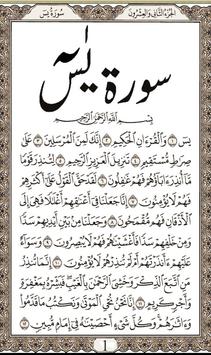 الجزء الثاني والعشرون سورة يس
سورة يس
بسم الله الرحمن الرحيم
يس ۝١ والقرءان الحكيم ۝٢ إنك لمن المرسلين ۝٣ على
صراط مستقيم ۝٤ تنزيل العزيز الرحيم ۝٥ لتنذر قوما
ما أنذر ءاباؤهم فهم غافلون ۝٦ لقد حق القول على أكثرهم
فهم لا يؤمنون ۝٧ إنا جعلنا في أعناقهم أغلالا فهي إلى
الأذقان فهم مقمحون ۝٨ وجعلنا من بين أيديهم سدا
ومن خلفهم سدا فأغشيناهم فهم لا يبصرون ۝٩ وسواء
عليهم ءأنذرتهم أم لم تنذرهم لا يؤمنون ۝١٠ إنما تنذر
من اتبع الذكر وخشي الرحمن بالغيب فبشره بمغفرة
وأجر كريم ۝١١ إنا نحن نحي الموتى ونكتب ما قدموا
وءاثارهم وكل شيء أحصيناه في إمام مبين ۝١٢
1